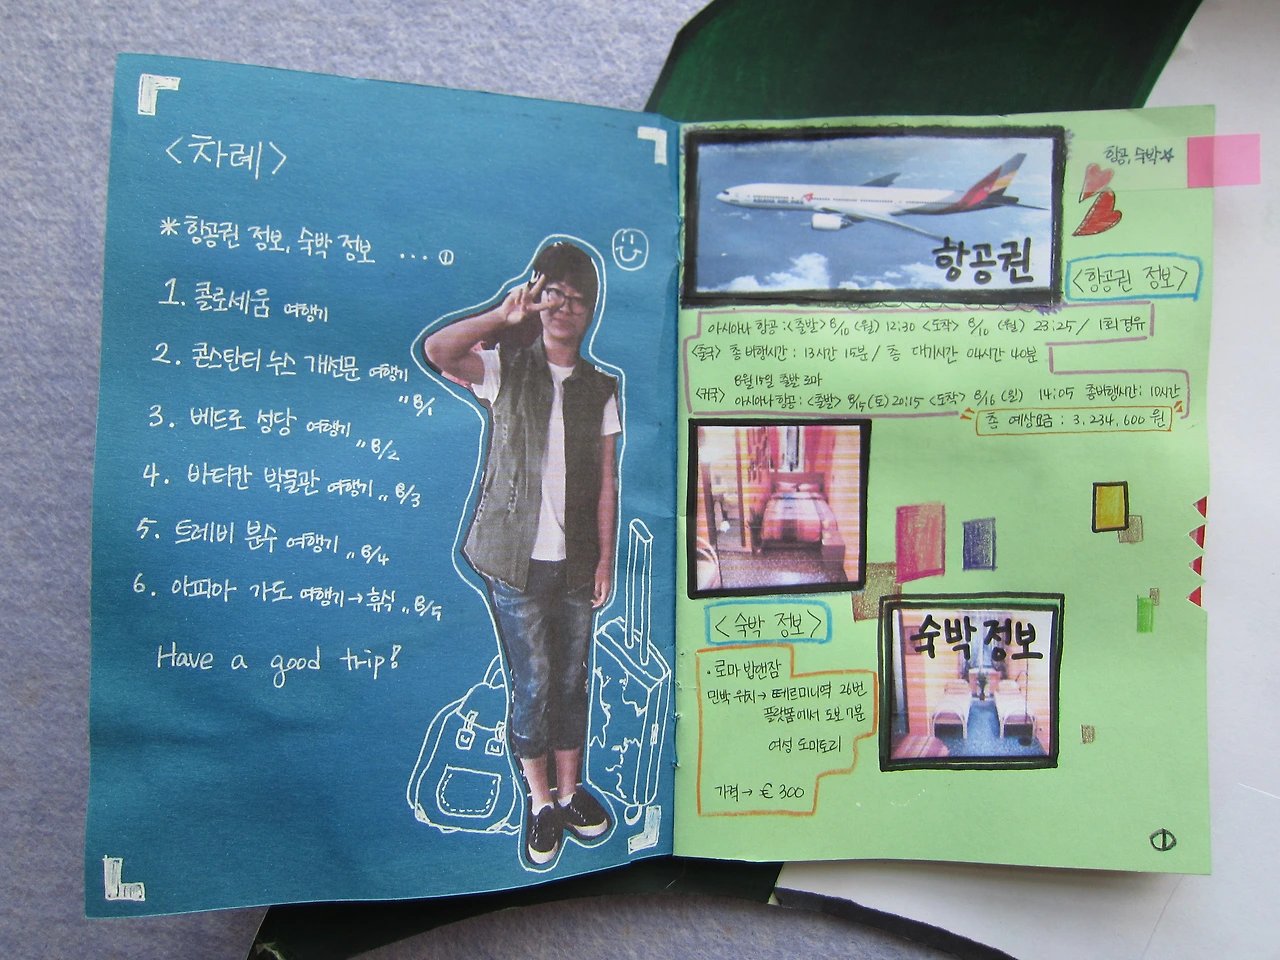 <차례>
*항공권 정보, 숙박 정보 ... ①
1. 콜로세움 여행기
2. 콘스탄티누스 개선문 여행기
〃8/1
3. 베드로 성당 여행기 〃8/2
4. 바티칸 박물관 여행기 〃8/3
5. 트레비 분수 여행기 〃8/4
6. 아피아 가도 여행기→휴식 〃8/5
Have a good trip!
항공, 숙박☆
ASIANA AIRLINES
항공권
<항공권 정보>
아시아나 항공:<출발>8/10 (월) 12:30 <도착> 8/10 (월) 23:25/ 1회 경유
<출국> 총 비행시간: 13시간 15분/ 총 대기시간 04시간 40분
8월 15일 출발 로마
<귀국> 아시아나 항공: <출발> 8/15(토) 20:15 <도착> 8/16 (일) 14:05 총비행시간: 10시간
총 예상요금: 3,234,600원
<숙박 정보>
숙박 정보
·로마 밥앤잠
민박 위치→ 떼르미니역 26번
플랫폼에서 도보 7분
여성 도미토리
가격→ € 300
①